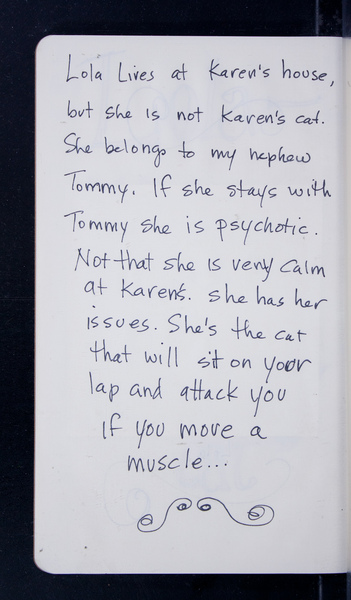 Lola Lives at Karen's house,
but she is not Karen's cat.
She belongs to my nephew
Tommy. If she stays with
Tommy she is psychotic.
Not that she is very calm
at Karen's. she has her
issues. She's the cat
that will sit on your
lap and attack you
if you move a
muscle...